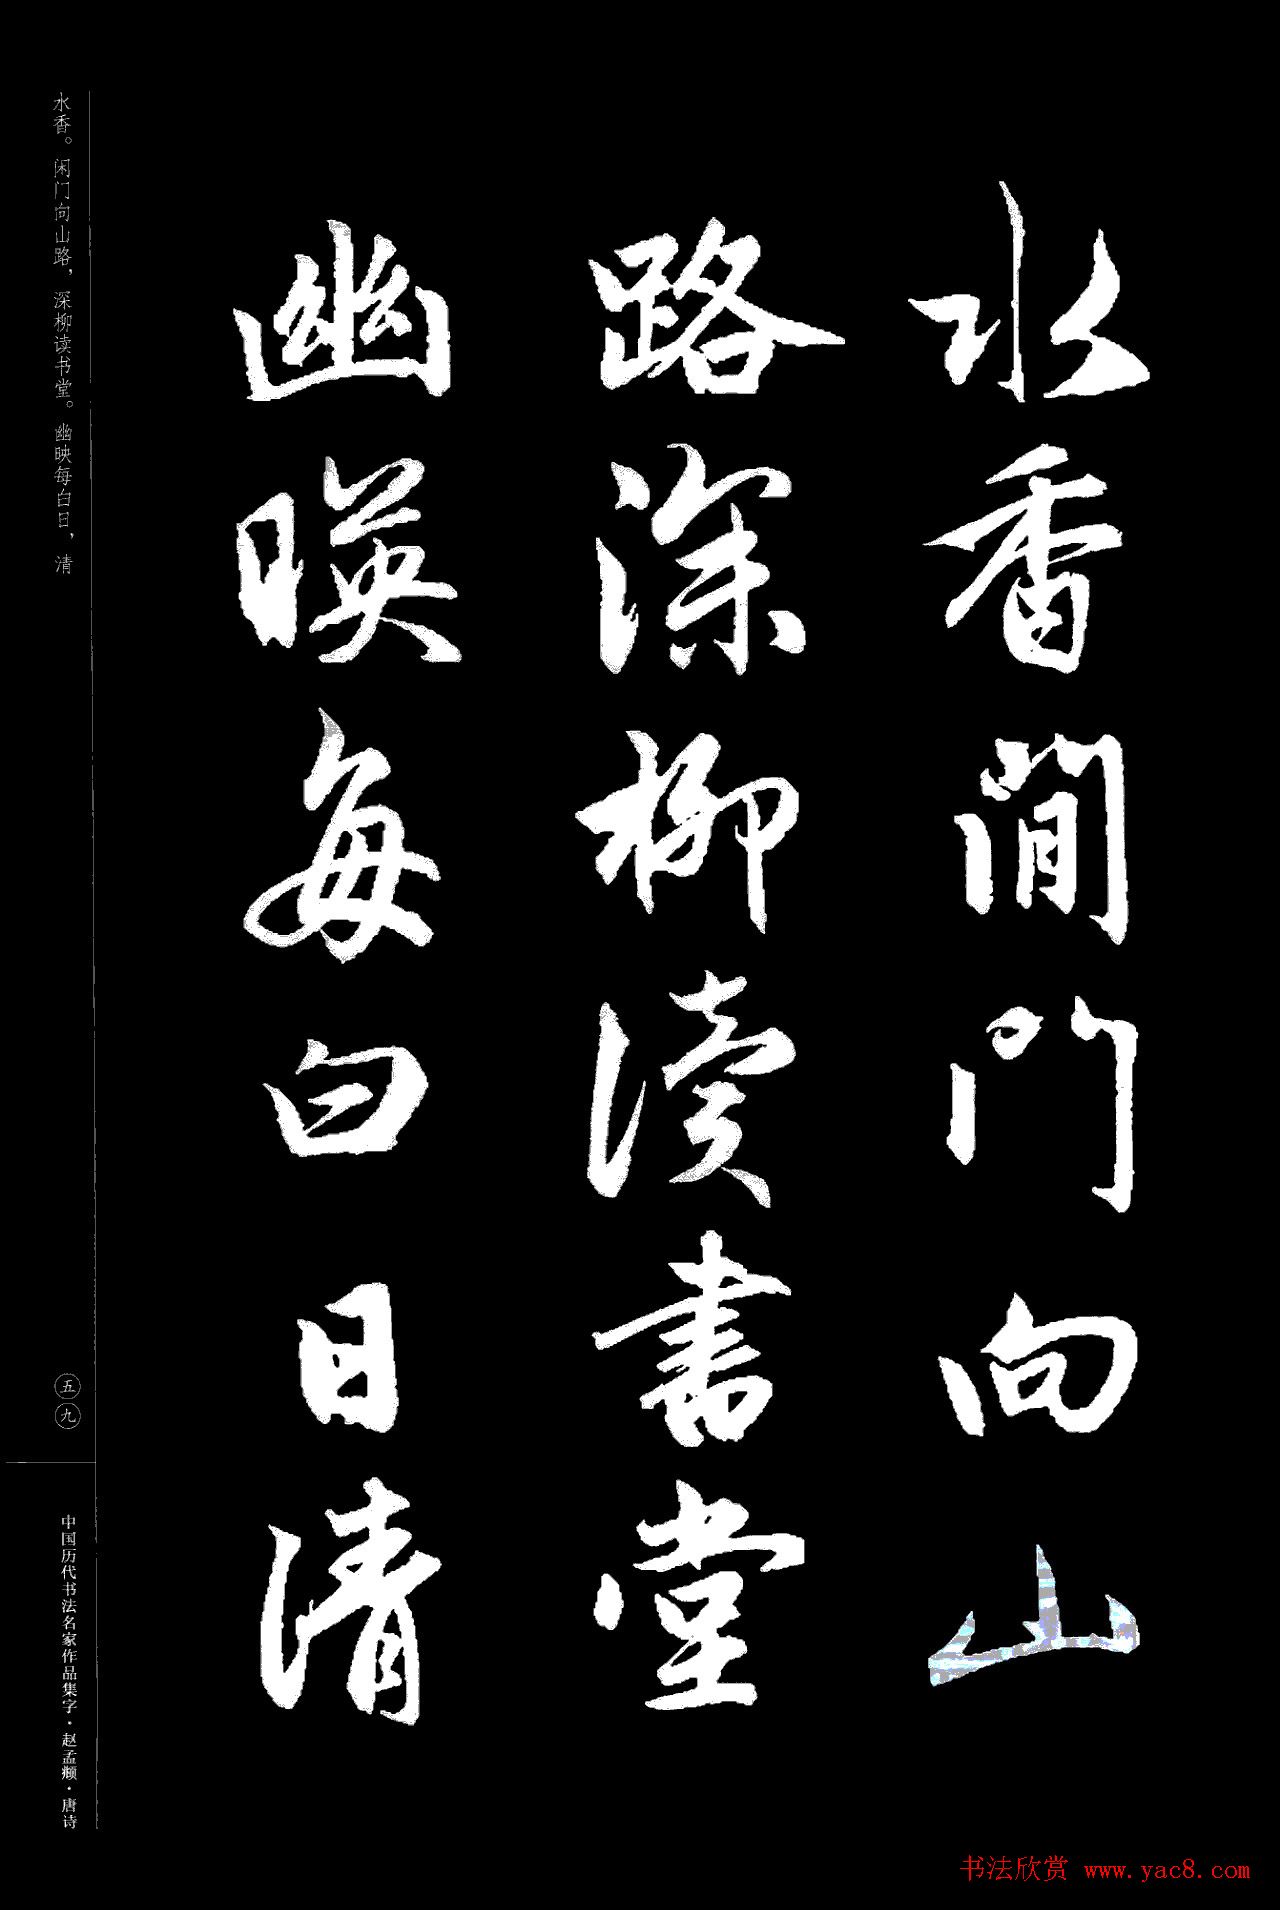 水香閒門向山
路深柳读書堂
幽暎每白日清
水香。闲门向山路，深柳读书堂。幽映每白日，清
五九
中国历代书法名家作品集字·赵孟頫·唐诗
书法欣赏 www.yac8.com